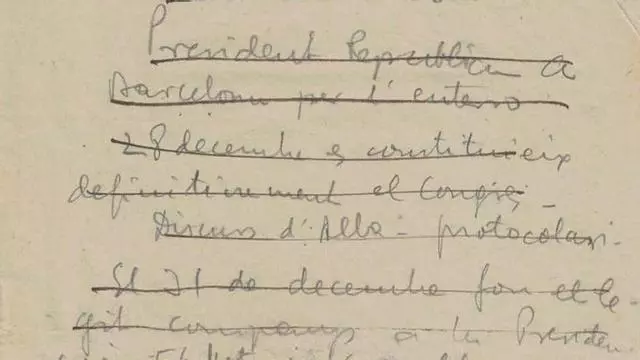 President Republica a
Barcelona per l'enterro
28 decembre es constitueix
definitivament el Congrés -
Discurs d'Alba - protocolari.
El 31 de decembre fou ele-
git Companys a la Presiden